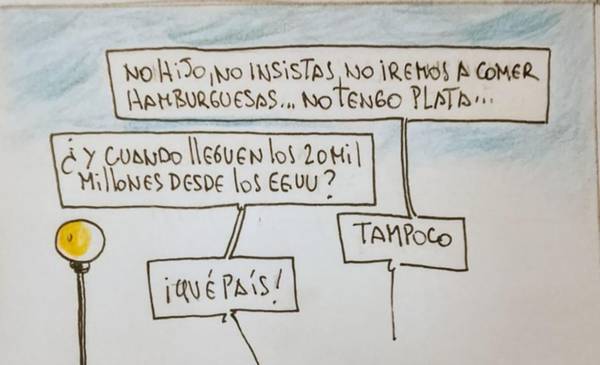 NO HIJO, NO INSISTAS, NO IREMOS A COMER
HAMBURGUESAS... NO TENGO PLATA...
¿Y CUANDO LLEGUEN LOS 20 MIL
MILLONES DESDE LOS EEUU?
TAMPOCO
¡QUÉ PAÍS!